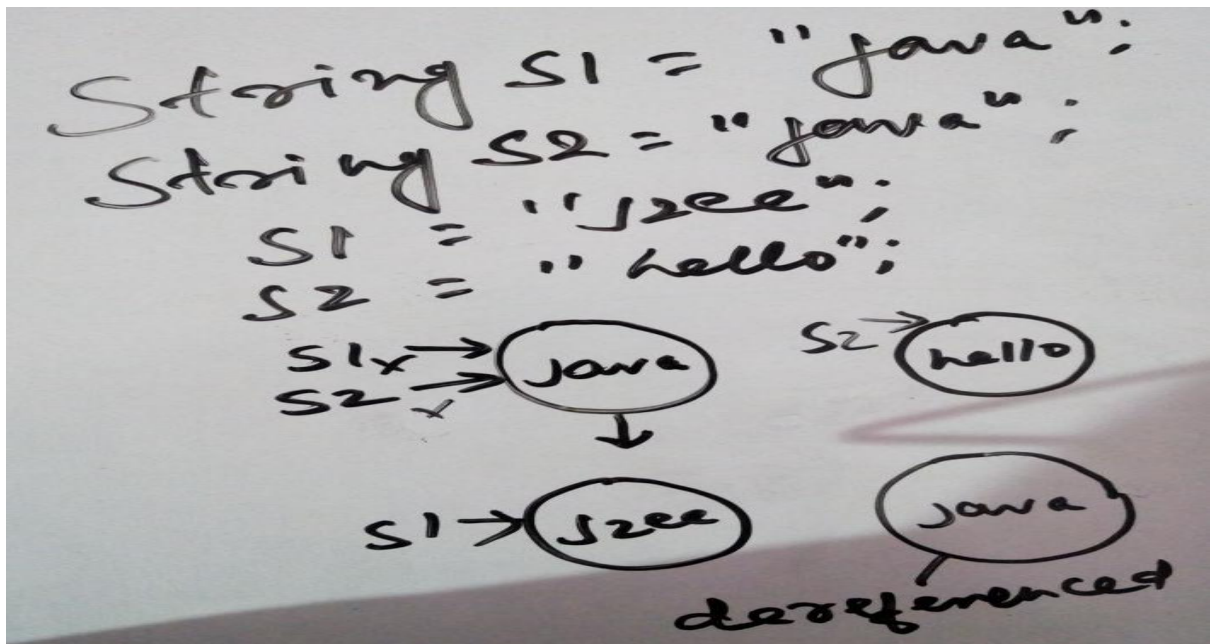 String S1 = "java";
String S2 = "java";
S1 = "J2ee";
S2 = "hello";
S1x → java
S2 → x
S2 → hello
↓
S1 → J2ee
java
dereferenced